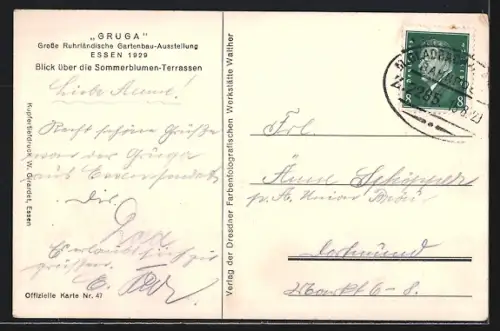 „GRUGA"
Große Ruhrländische Gartenbau-Ausstellung
ESSEN 1929
Blick über die Sommerblumen-Terrassen
Liebe Anne!
Recht schöne Grüße
von der Gruga
aus Essen sendet
Dir
Es erlaubt sich zu
grüßen
Offizielle Karte Nr. 47
Kupfertiefdruck W. Girardet, Essen
Verlag der Dresdner Farbenfotografischen Werkstätte Walther
8 8
Frl.
Änne
p. A. Union Bräu
Dortmund
Markt 6-8.